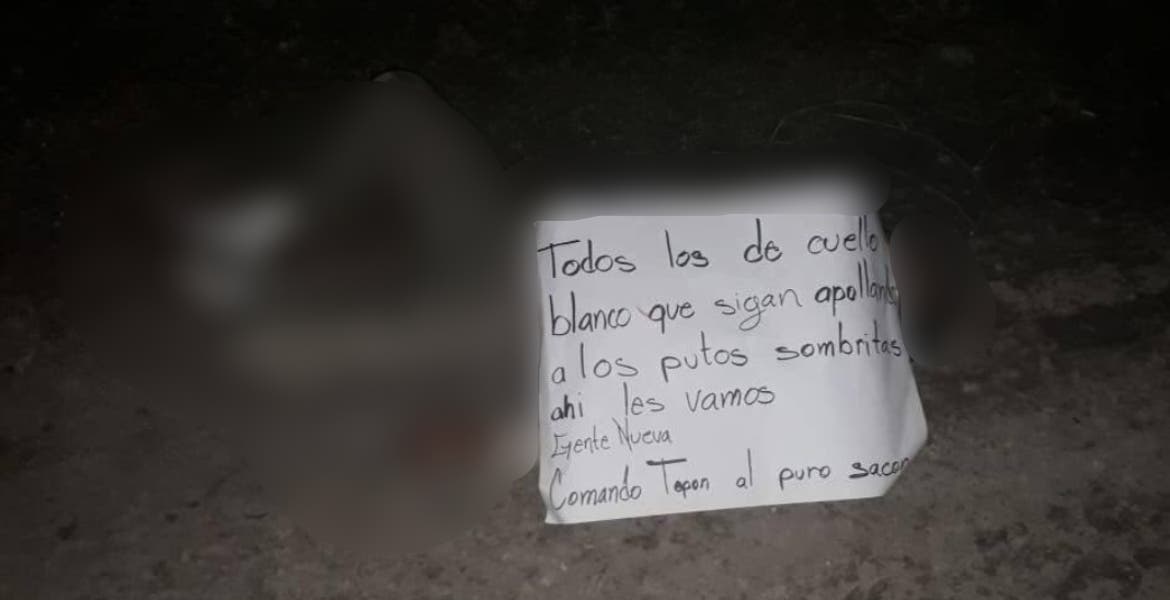 Todos los de cuello
blanco que sigan apollando
a los putos sombritas
ahi les vamos
Gente Nueva
Comando Tepon al puro